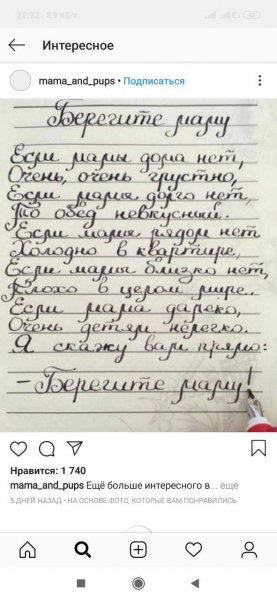 22:32 8,9 КБ/с
Интересное
mama_and_pups • Подписаться
Берегите маму
Если мамы дома нет,
Очень, очень грустно,
Если мамы долго нет,
То обед невкусный.
Если мамы рядом нет
Холодно в квартире,
Если мамы близко нет,
Плохо в целом мире.
Если мама далеко,
Очень детям нелегко.
Я скажу вам прямо:
- Берегите маму!
Нравится: 1 740
mama_and_pups Ещё больше интересного в... еще
5 ДНЕЙ НАЗАД • НА ОСНОВЕ ФОТО, КОТОРЫЕ ВАМ ПОНРАВИЛИСЬ